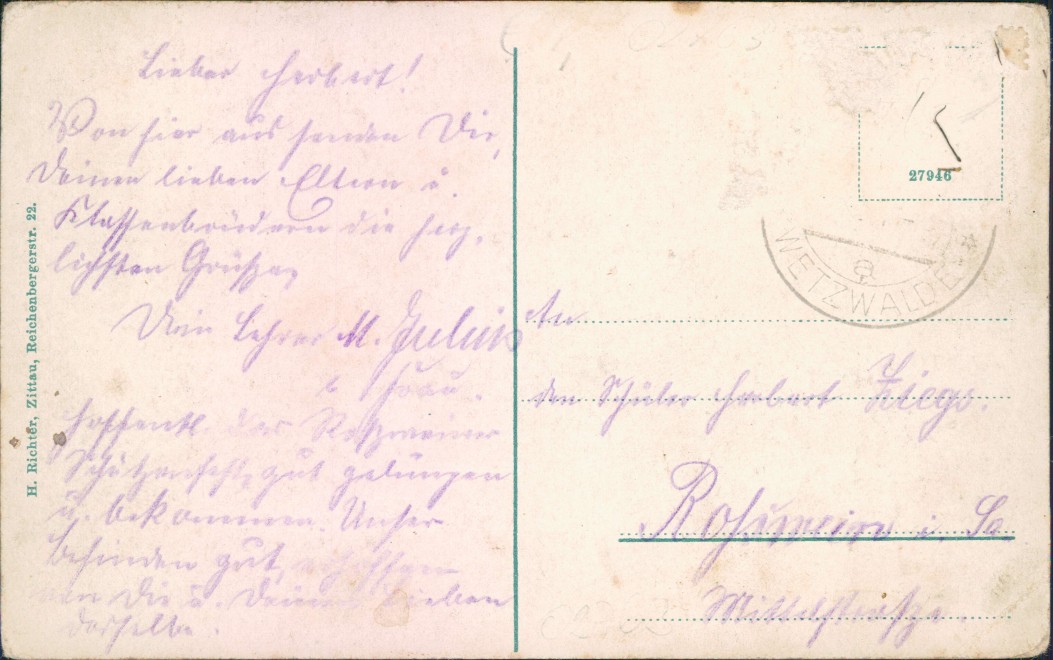 Lieber Herbert!
Von hier aus senden Dir,
Deinen lieben Eltern u.
Klassenbrüdern die herz-
lichsten Grüße,
Dein Lehrer M.
u. Frau.
Hoffentl. das Roßweiner
Schützenfest gut gelungen
u. bekommen. Unser
Befinden gut, erhoffen
von Dir u. Deinen Lieben
dasselbe.
H. Richter, Zittau, Reichenbergerstr. 22.
27946
WETZWALDE
An
den Schüler Herbert
Roßwein i. Sa.
Mittelstraße.